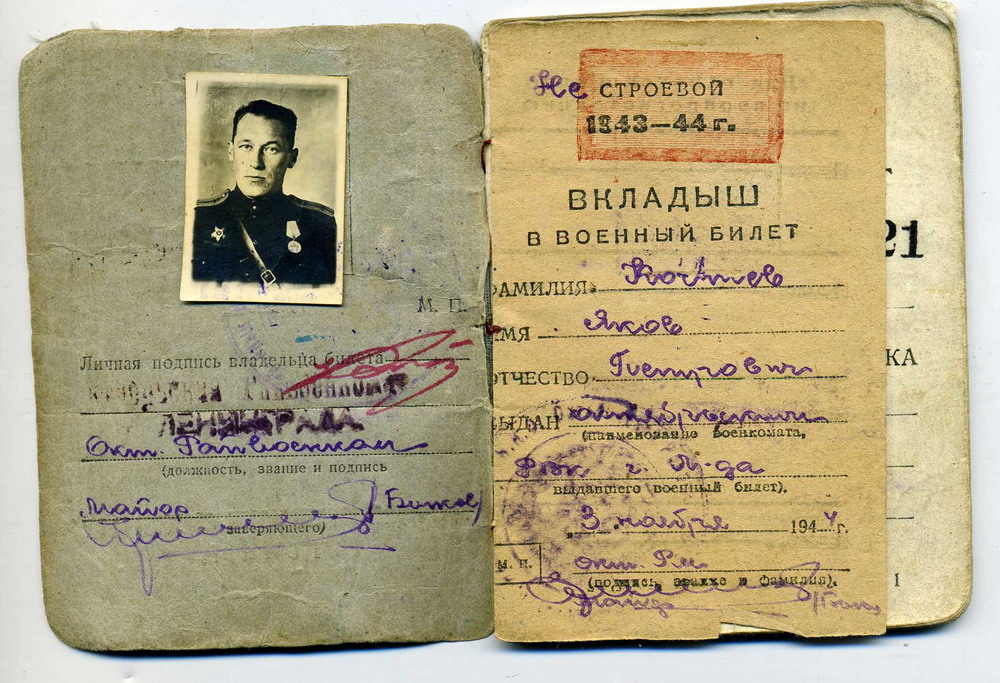 М. П.
Личная подпись владельца билета
ЛЕНИНГРАДА
Окт. Райвоенком
(должность, звание и подпись
майор
заверяющего)
Не СТРОЕВОЙ
1943—44 г.
ВКЛАДЫШ
В ВОЕННЫЙ БИЛЕТ
ФАМИЛИЯ
ИМЯ Яков
ОТЧЕСТВО Петрович
ВЫДАН Октябрьским
(наименование военкомата,
РВК г. Л-да
выдавшего военный билет).
3 ноября 1944 г.
М. П.
(подпись, звание и фамилия).
21
КА
1